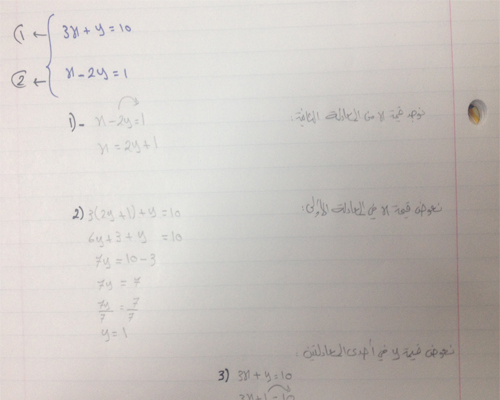 ① ← 3x + y = 10
② ← x - 2y = 1
1)- x - 2y = 1 نوجد قيمة x من المعادلة الثانية:
x = 2y + 1
2) 3(2y + 1) + y = 10 نعوض قيمة x في المعادلة الأولى:
6y + 3 + y = 10
7y = 10 - 3
7y = 7
7y/7 = 7/7
y = 1
نعوض قيمة y في أحدى المعادلتين:
3) 3x + y = 10
3x + 1 = 10